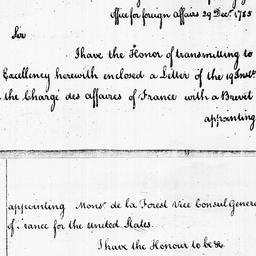 Office for foreign Affairs 29 Decr. 1785
Sir
I have the Honor of transmitting to
Excellency herewith enclosed a Letter of the 19 Inst.
the Chargé des affaires of France with a Brevet
appointing
appointing Monsr. de la Forest Vice Consul Genera
of rance for the United States.
I have the Honour to be &